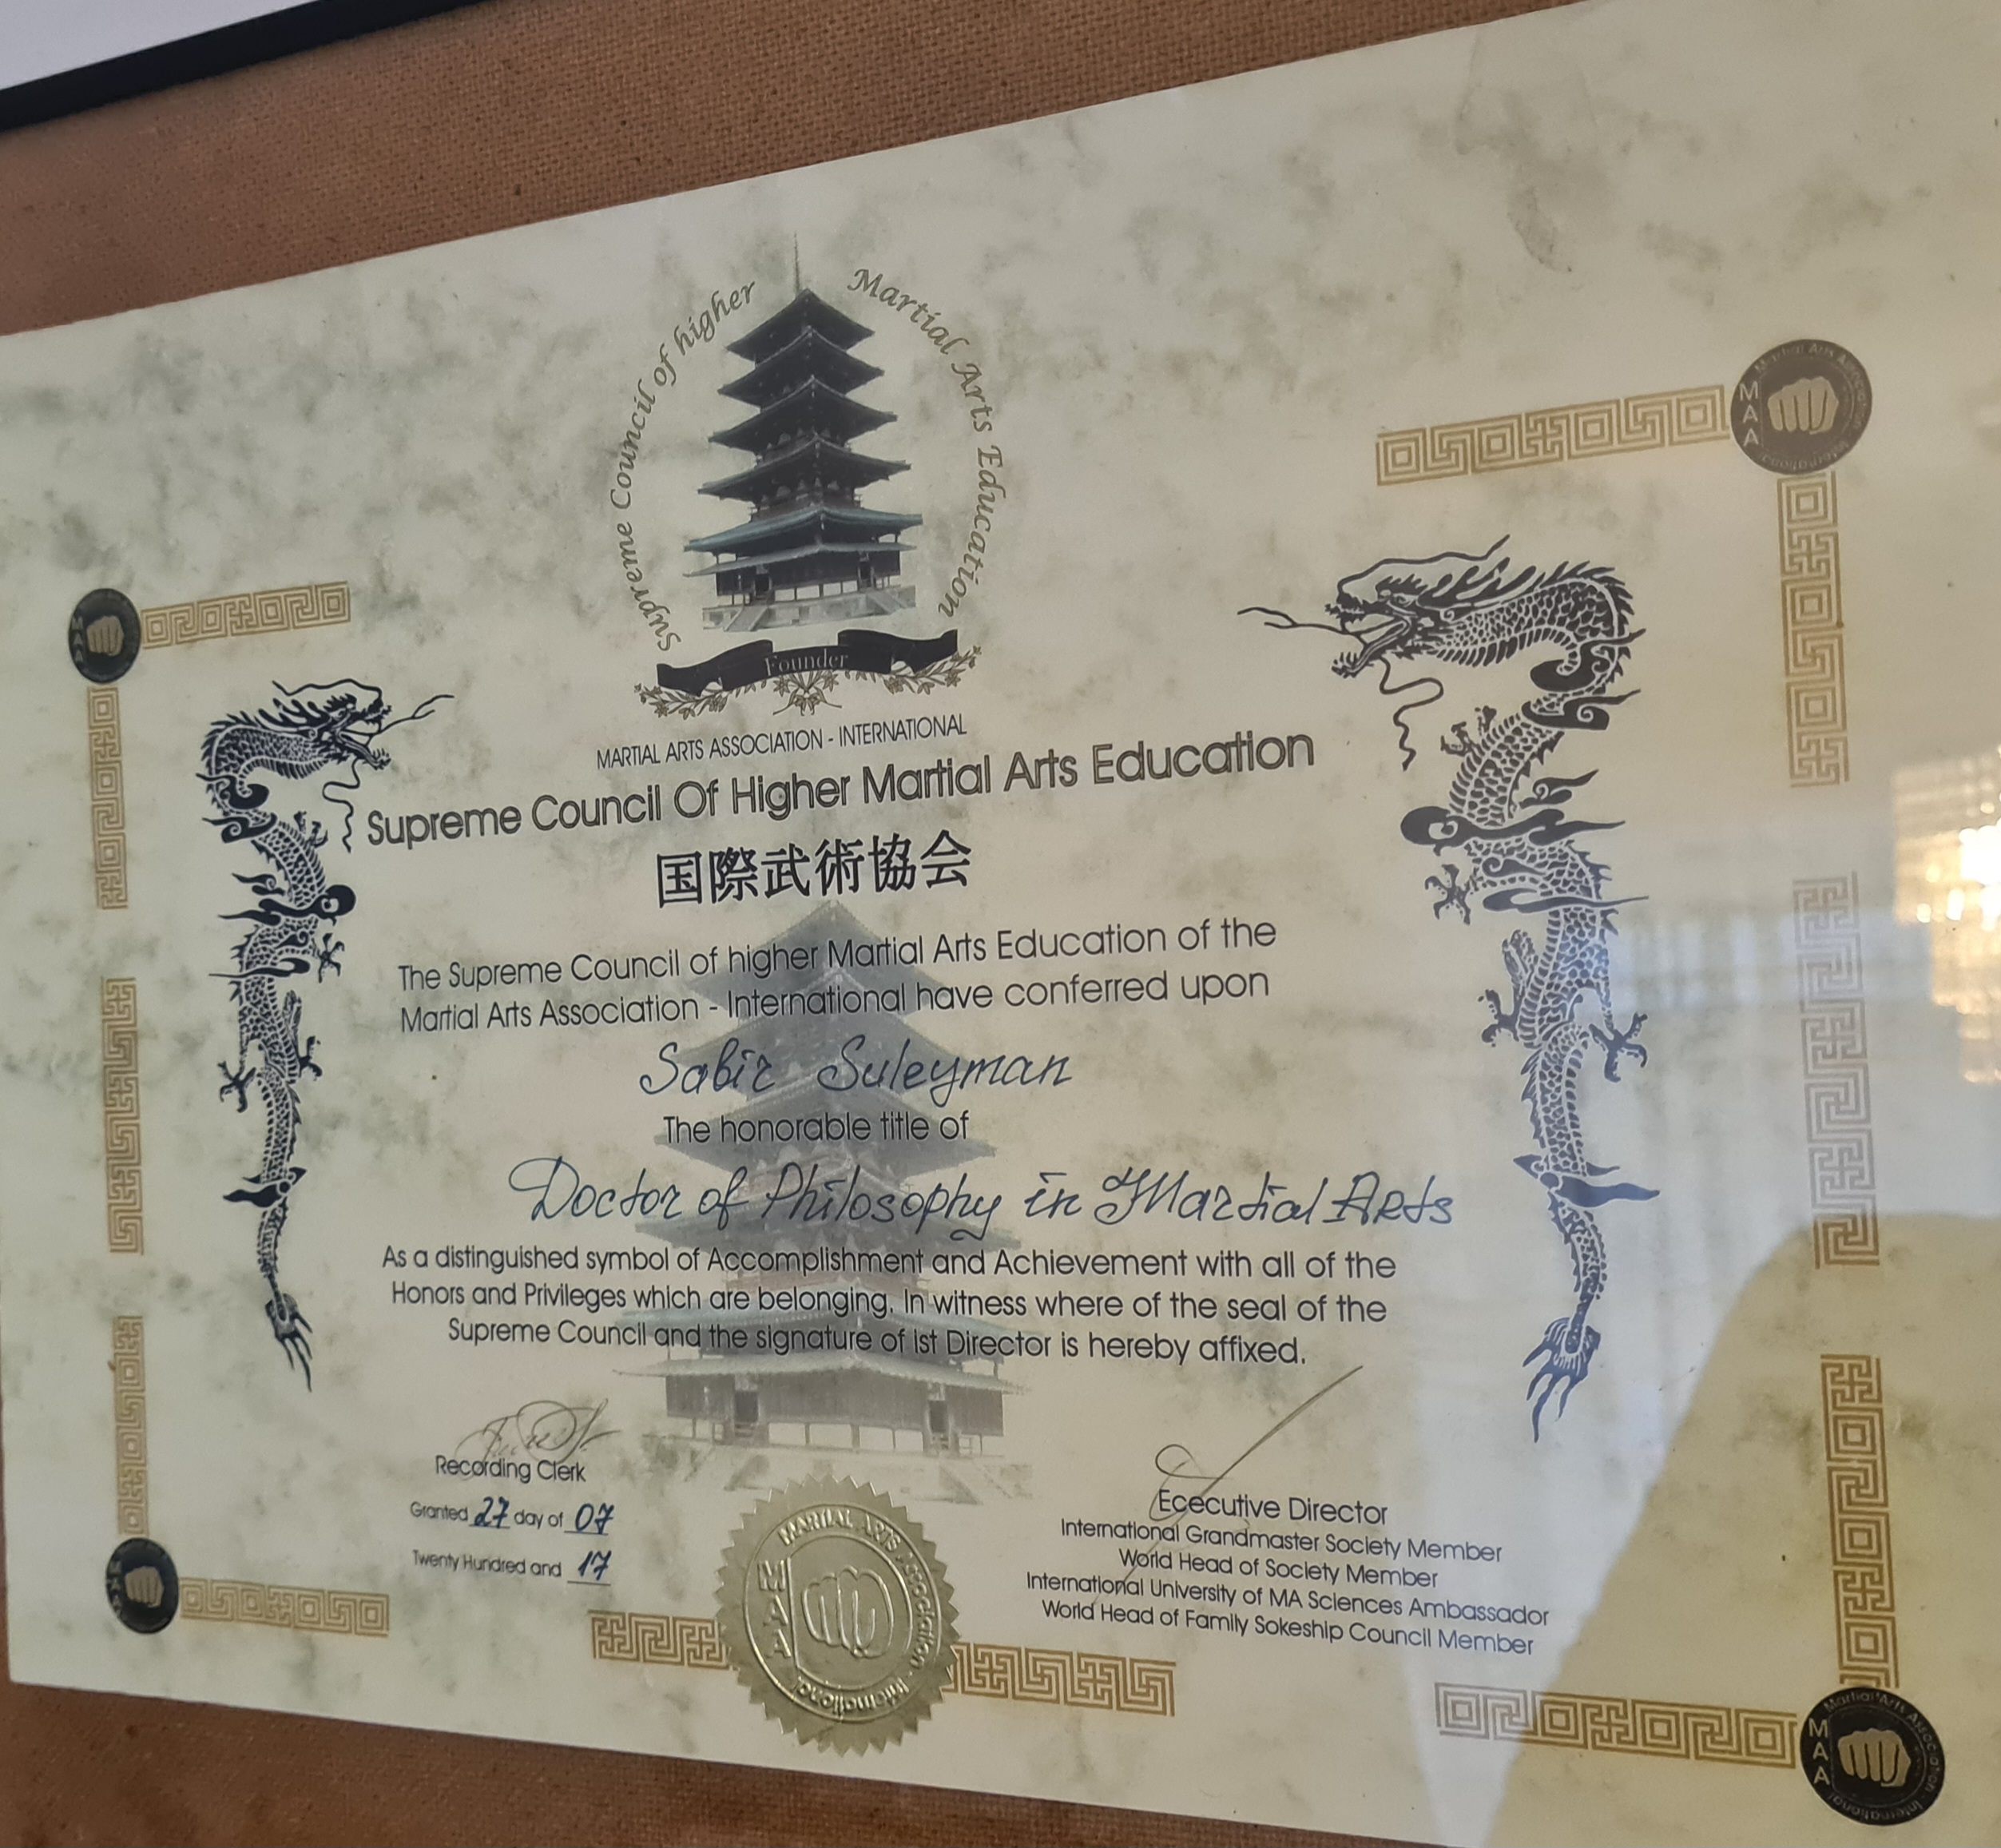 Supreme Council of higher Martial Arts Education
Founder
MARTIAL ARTS ASSOCIATION - INTERNATIONAL
Supreme Council Of Higher Martial Arts Education
国際武術協会
The Supreme Council of higher Martial Arts Education of the
Martial Arts Association - International have conferred upon
Sabir Suleyman
The honorable title of
Doctor of Philosophy in Martial Arts
As a distinguished symbol of Accomplishment and Achievement with all of the
Honors and Privileges which are belonging. In witness where of the seal of the
Supreme Council and the signature of Ist Director is hereby affixed.
Recording Clerk
Granted 27 day of 07
Twenty Hundred and 17
Ececutive Director
International Grandmaster Society Member
World Head of Society Member
International University of MA Sciences Ambassador
World Head of Family Sokeship Council Member
MARTIAL ARTS Association - International
MAA
Martial Arts Association - International
MAA
MAA
Martial Arts Association - International
MAA